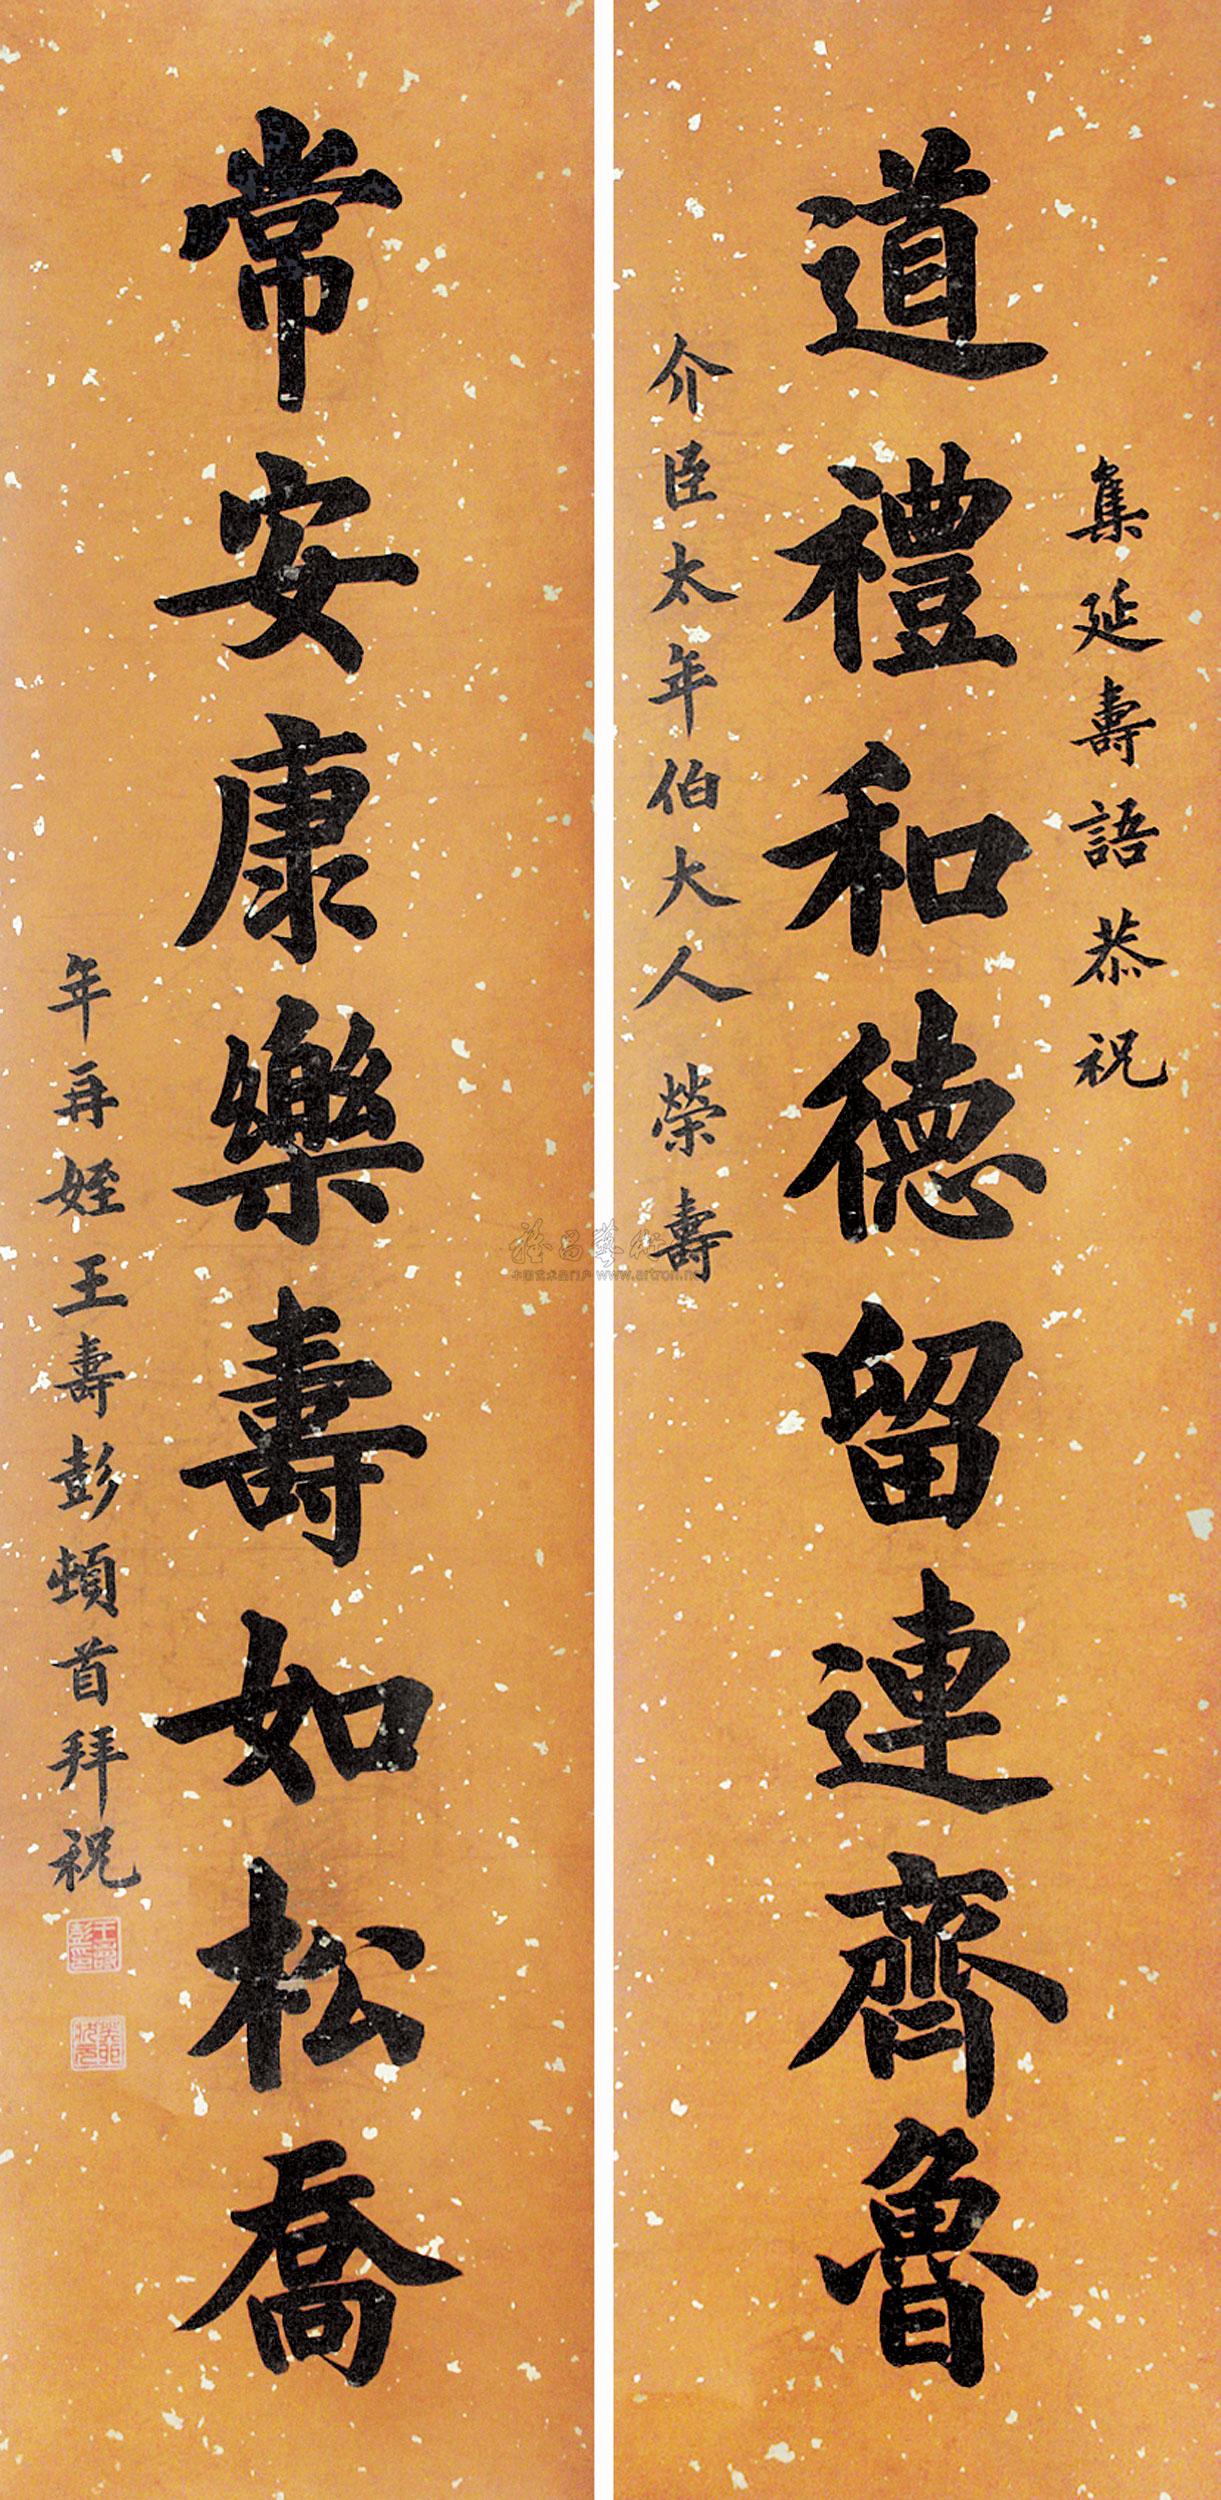 集延壽語恭祝
道禮和德留連齊魯
介臣太年伯大人 榮壽
常安康樂壽如松喬
年再姪王壽彭頓首拜祝
王壽彭印
癸卯狀元
www.artron.net